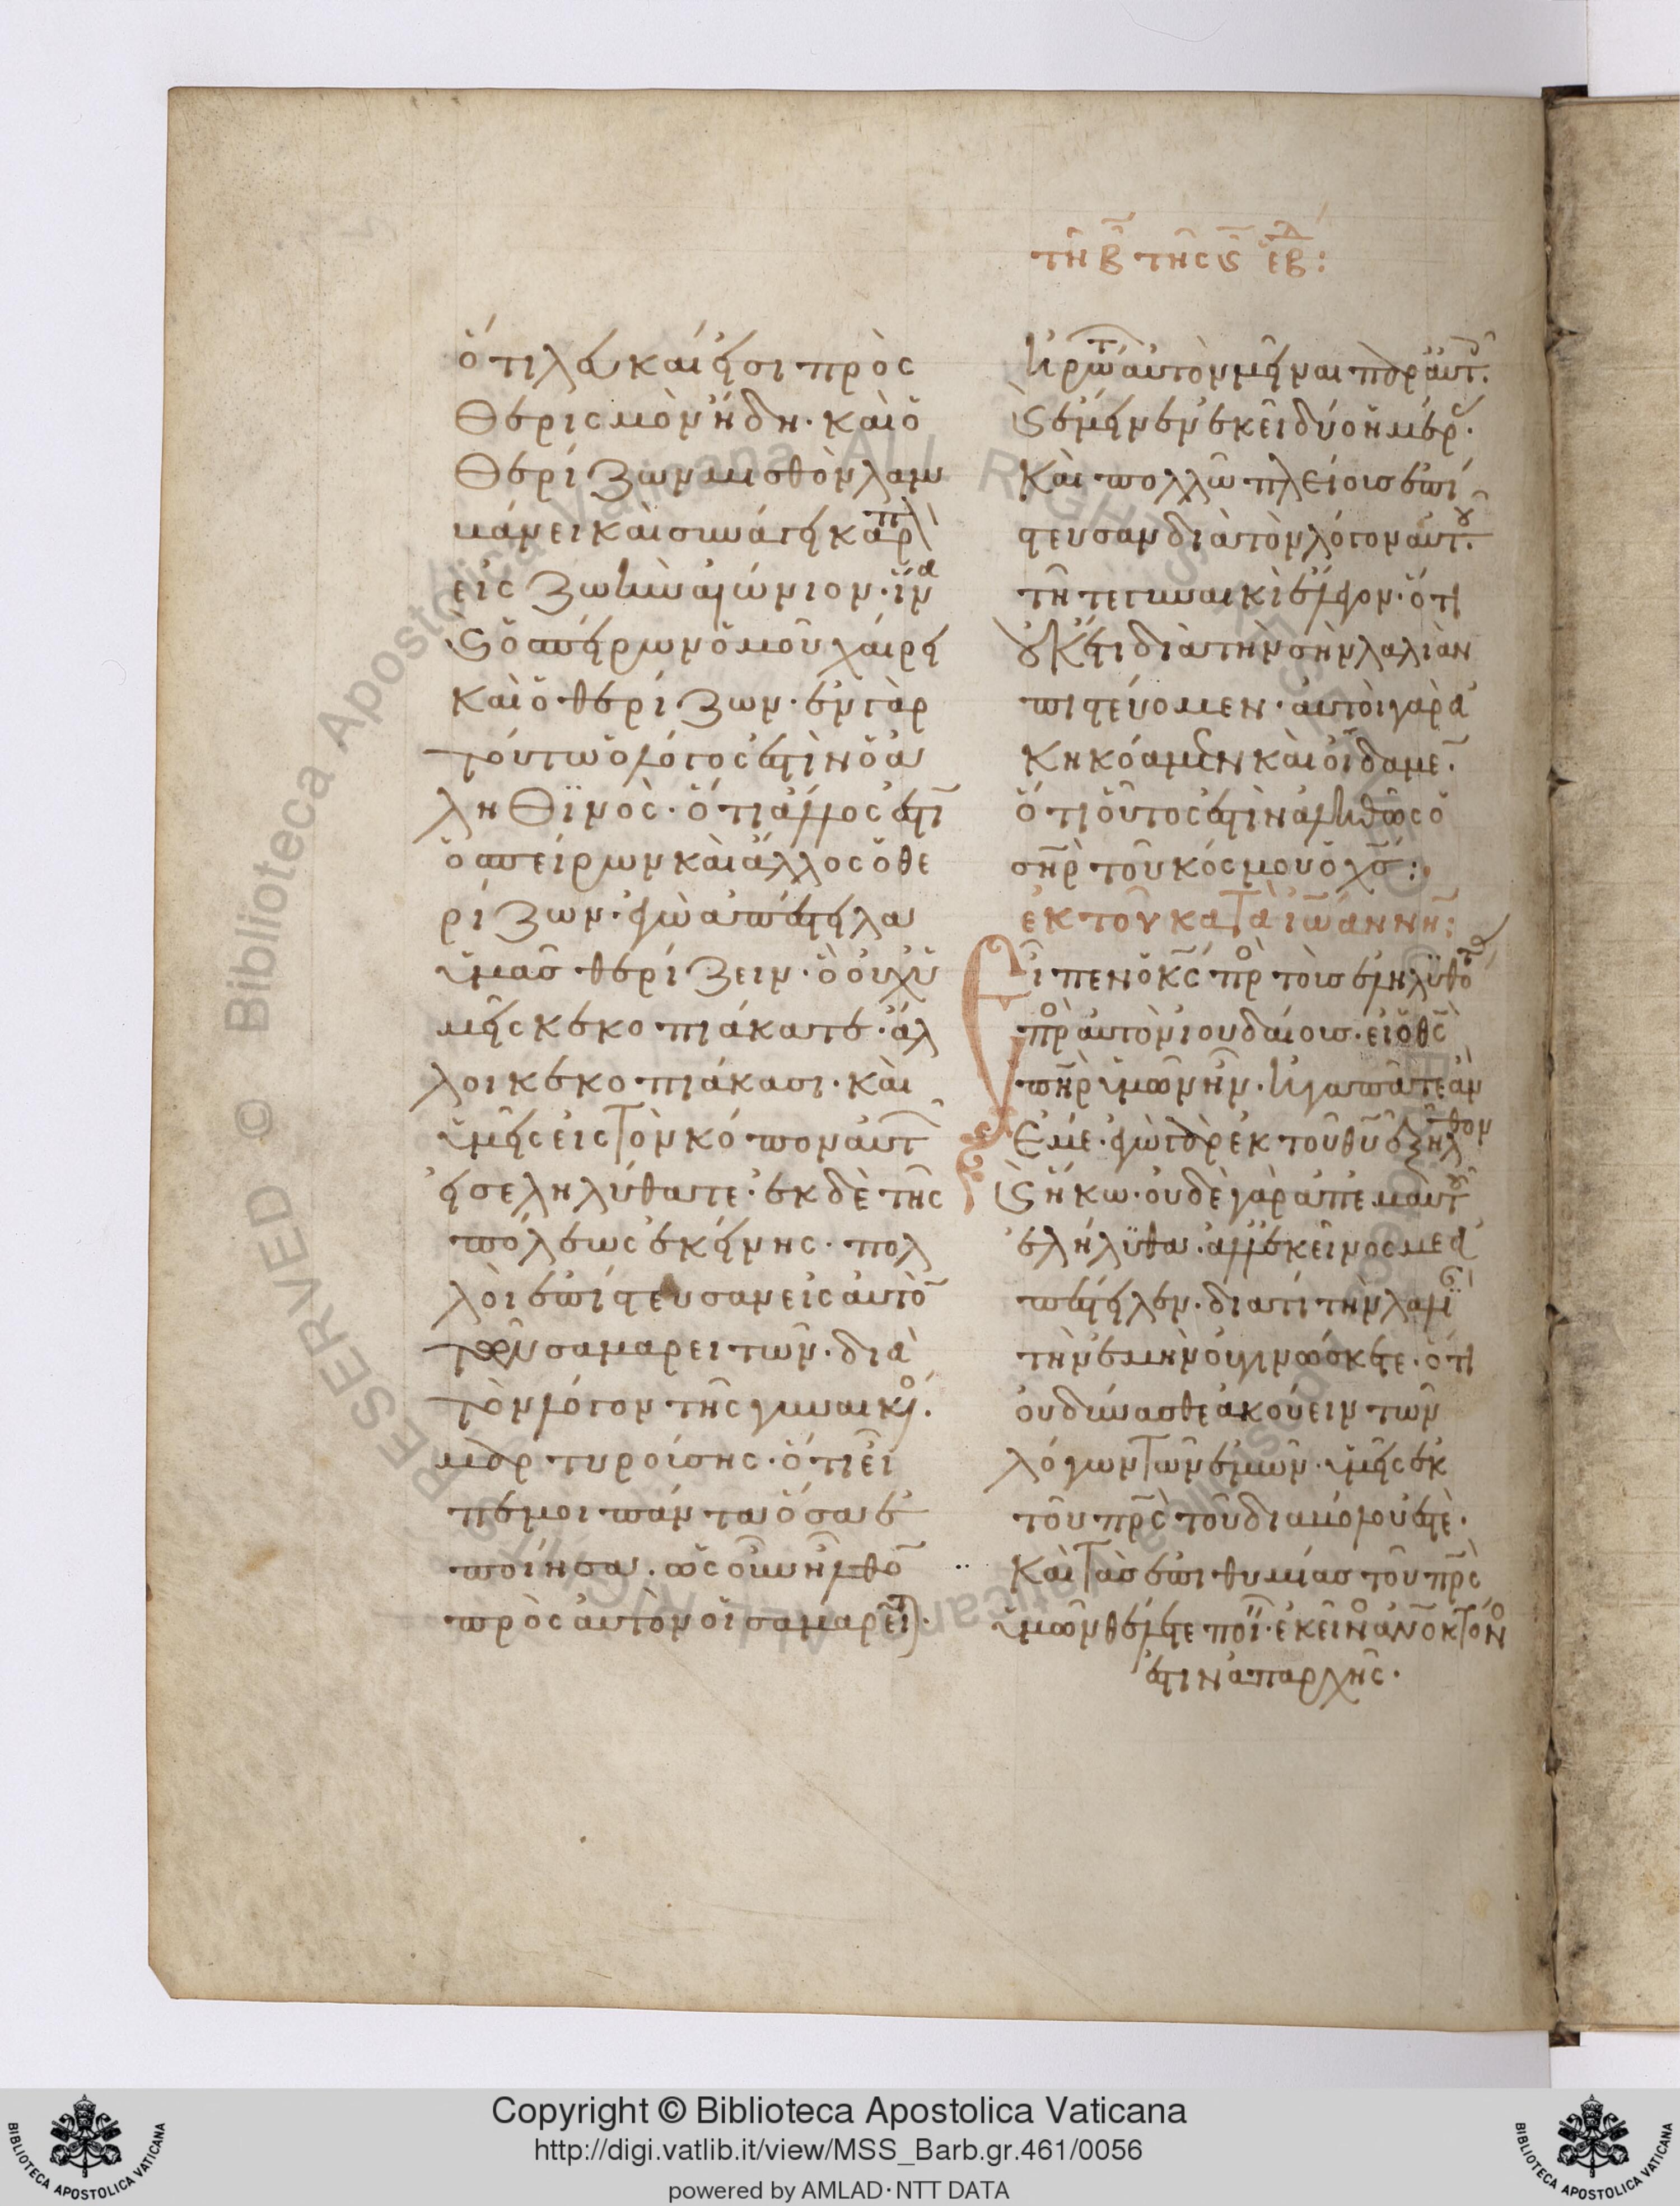 τῆ β τῆς ϛ ἑβδ:
ὅτι λευκαί εἰσι πρὸς
θερισμὸν ἤδη· καὶ ὁ
θερίζων μισθὸν λαμ
βάνει καὶ συνάγει καρπ
εἰς ζωὴν αἰώνιον· ἵνα
ϗ ὁ σπείρων ὁμοῦ χαίρει
καὶ ὁ θερίζων· ἐν γὰρ
τούτω ὁ λόγος ἐστὶν ὁ ἀ
ληθϊνὸς· ὅτι ἄλλος ἐστὶ
ὁ σπείρων καὶ ἄλλος ὁ θε
ρίζων· ἐγὼ ἀπέστειλα
ὑμᾶς θερίζειν· ὃ οὐχ ὑ
μεῖς κεκοπιάκατε· ἄλ
λοι κεκοπιάκασι· καὶ
ὑμεῖς εἰς τὸν κόπον αὐτ
εἰσεληλύθατε· ἐκ δὲ τῆς
πόλεως ἐκείνης· πολ
λοὶ ἐπίστευσαν εἰς αὐτὸ
τῶν σαμαρειτῶν· διὰ
τὸν λόγον τῆς γυναικὸ·
μαρτυρούσης· ὅτι εἶ
πέ μοι πάντα ὅσα ἐ
ποίησα· ὡς οὖν ἦλθο
πρὸς αὐτὸν οἱ σαμαρεῖτ·
ἠρώτ αὐτὸν μεῖναι παρ αὐτ·
ϗ ἔμεινεν ἐκεῖ δύο ἡμέρ·
καὶ πολλῶ πλείους ἐπί
στευσαν διὰ τὸν λόγον αὐτοῦ·
τῆ τε γυναικὶ ἔλεγον· ὅτι
οὐκέτι διὰ τὴν σὴν λαλιὰν
πιστεύομεν· αὐτοὶ γὰρ ἀ
κηκόαμεν καὶ οἴδαμε·
ὅτι οὗτός ἐστιν ἀληθῶς ὁ
σηρ τοῦ κόσμου ὁ χς:
ἐκ τοῦ κατὰ ἰωάννην:
Εἶπεν ὁ κς πρὸ τοὺς ἐληλυθότ
πρὸ αὐτὸν ἰουδαίους· εἰ ὁ θς
πηρ ὑμῶν ἦν· ἠγαπᾶτε ἂν
ἐμέ· ἐγὼ γὰρ ἐκ τοῦ θυ ἐξῆλθον
ϗ ἥκω· οὐδὲ γὰρ ἀπ ἐμαυτοῦ
ἐλήλυθα· ἀλλ ἐκεῖνός με ἀ
πέστειλεν· διατί τὴν λαλι
τὴν ἐμὴν οὐ γινώσκετε· ὅτι
οὐ δύνασθε ἀκούειν τῶν
λόγων τῶν ἐμῶν· ὑμεῖς ἐκ
τοῦ πρς τοῦ διαβόλου ἐστέ·
καὶ τὰς ἐπιθυμίας τοῦ πρς
ὑμῶν θέλετε ποι· ἐκεῖνο ἀνοκτόνο
ἐστιν ἀπ αρχῆς·
Copyright © Biblioteca Apostolica Vaticana
http://digi.vatlib.it/view/MSS_Barb.gr.461/0056
powered by AMLAD·NTT DATA
BIBLIOTECA APOSTOLICA VATICANA
BIBLIOTECA APOSTOLICA VATICANA